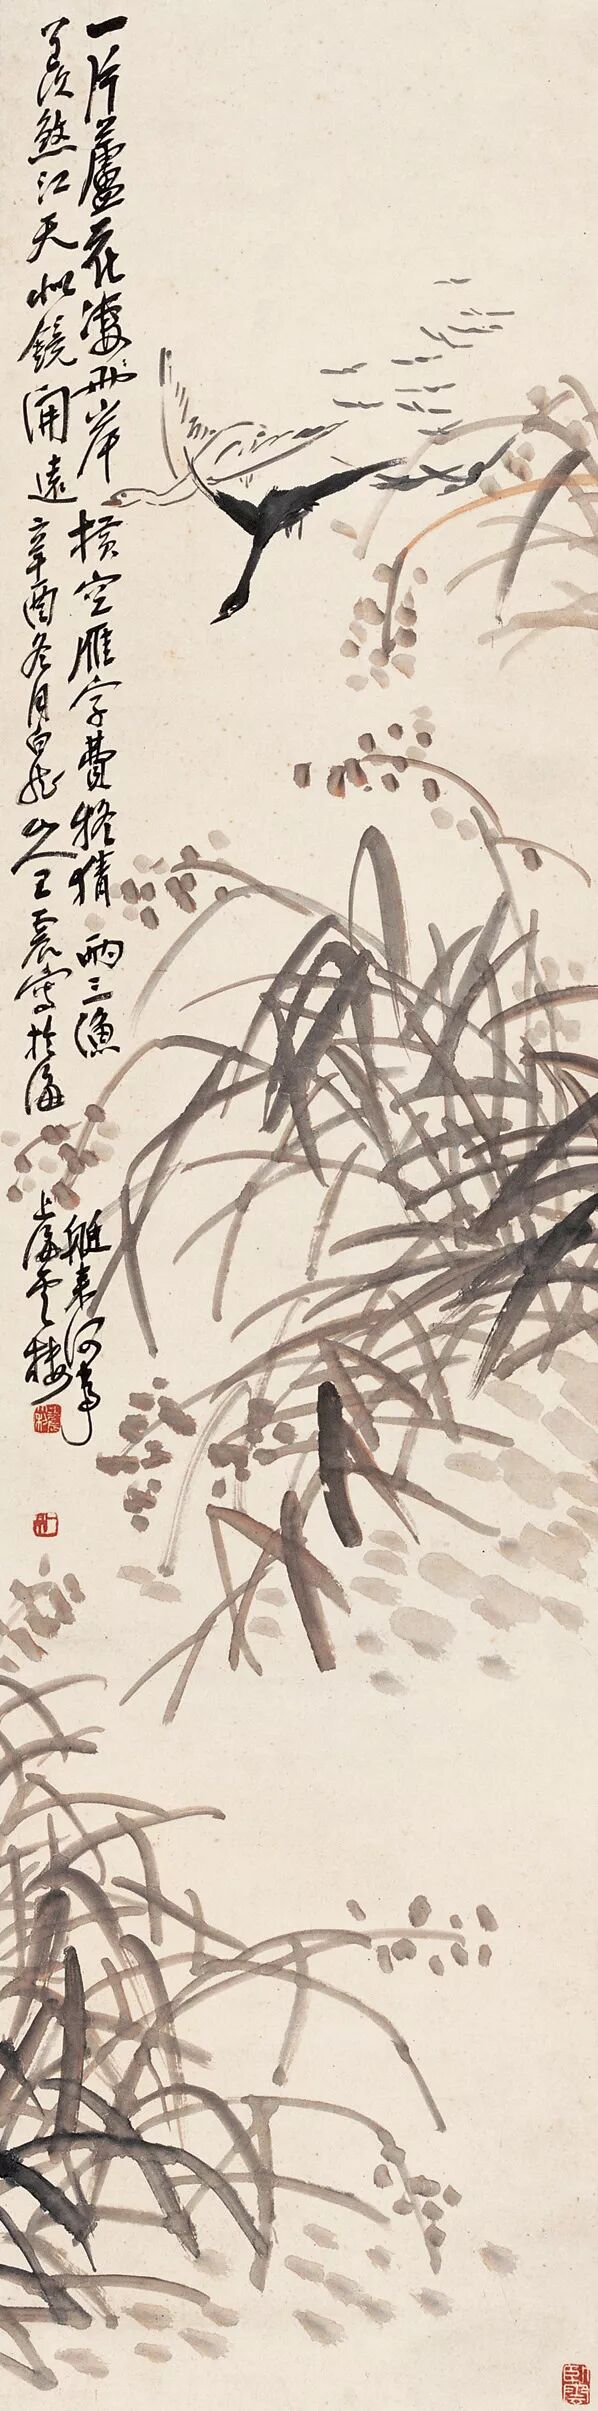 一片蘆花淺水岸橫空雁字費疑猜兩三漁艇來何事
羨煞江天似鏡開遠辛酉冬月白龍山人王震寫於海
上海雲樓